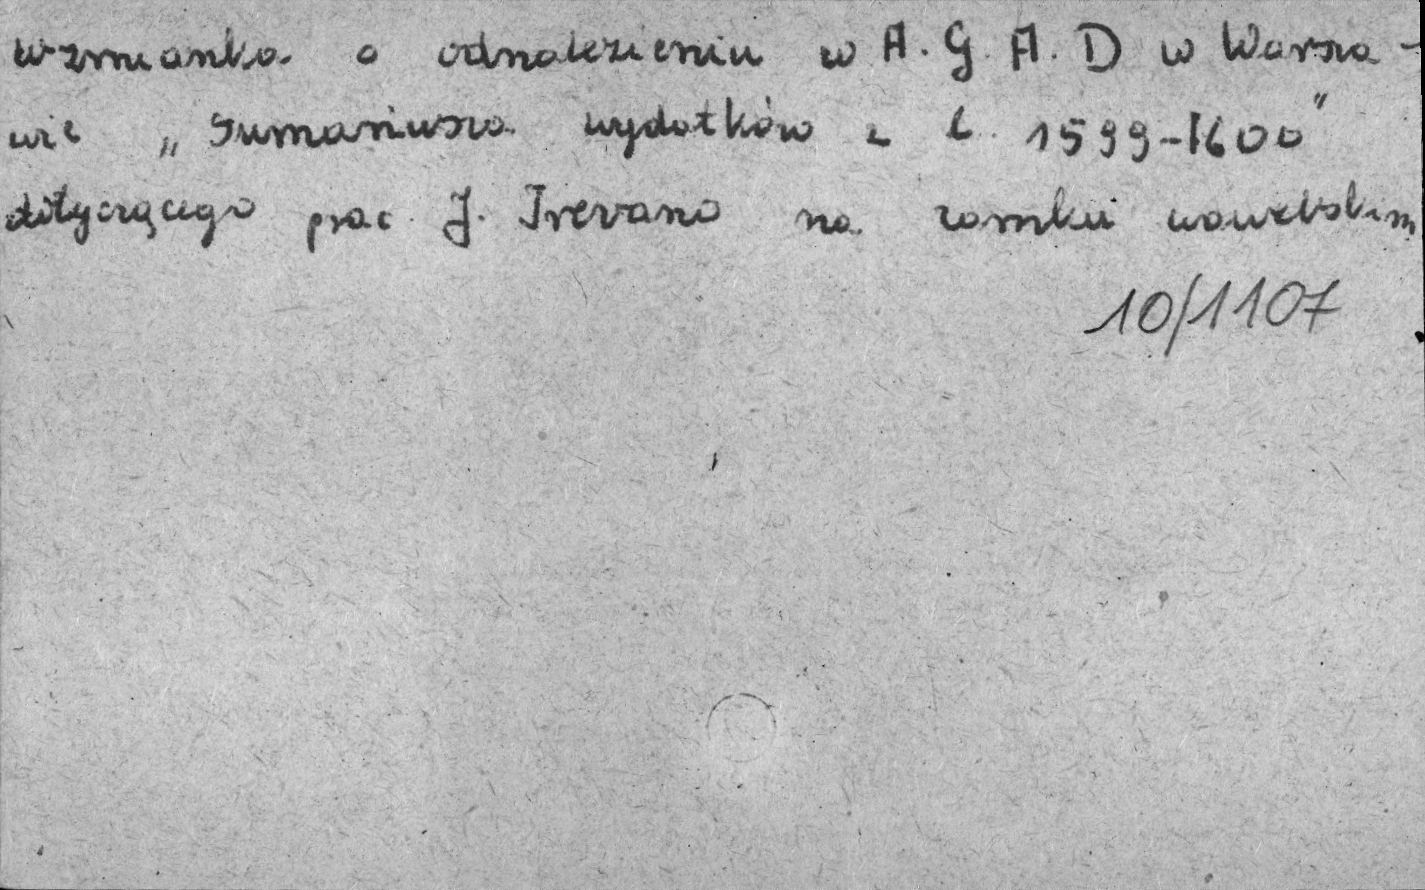 wzmianka o odnalezieniu w A.G.A.D w Warsza-
wie „Sumariusza wydatków z l. 1599-1600"
dotyczącego prac J. Trevano na zamku wawelskim
10/1107